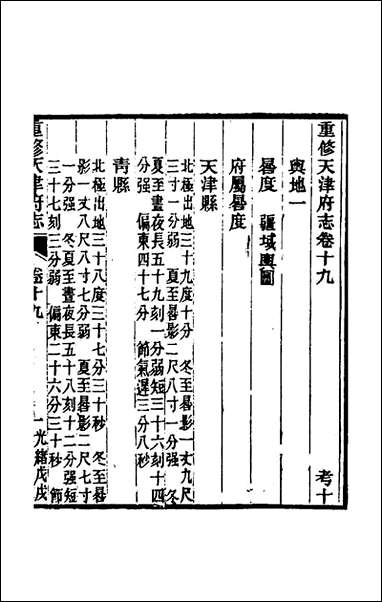 重修天津府志卷十九 考十
輿地一
晷度 疆域輿圖
府屬晷度
天津縣
北極出地三十九度十分 冬至晷影一丈九尺
三寸一分強 夏至晷影二尺八寸一分強 冬
夏至晝夜長五十九刻一分弱短三十六刻十四
分強 偏東四十七分 節氣遲三分八秒
青縣
北極出地三十八度三十七分三十秒 冬至晷
影一丈八尺八寸七分弱 夏至晷影二尺七寸
一分強 冬夏至晝夜長五十八刻十二分強短
三十七刻三分弱 偏東二十六分三十秒 節
重修天津府志 卷十九 一 光緒戊戌